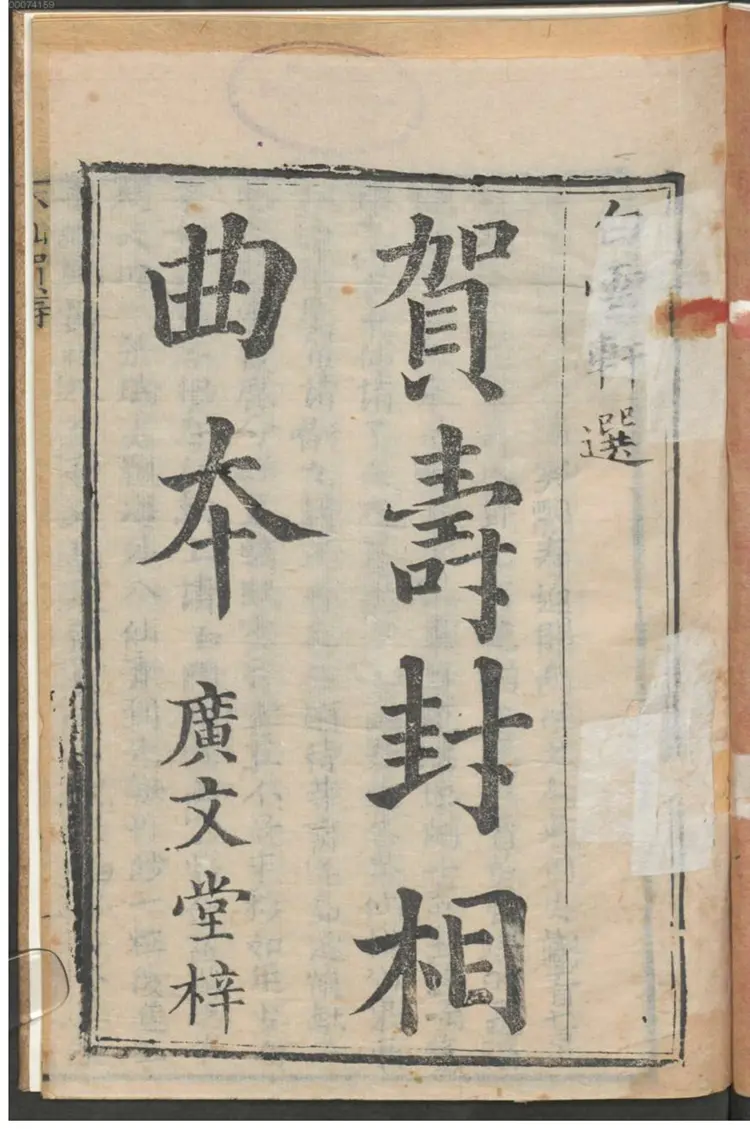 00074159
白雲軒選
賀壽封相
曲本
廣文堂梓